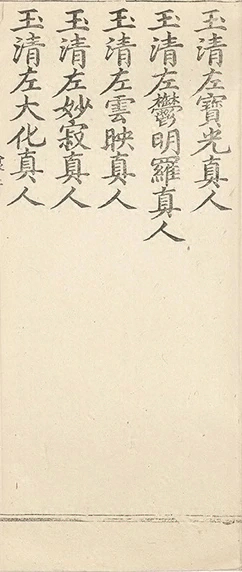 玉清左寶光真人
玉清左鬱明羅真人
玉清左雲映真人
玉清左妙寂真人
玉清左大化真人